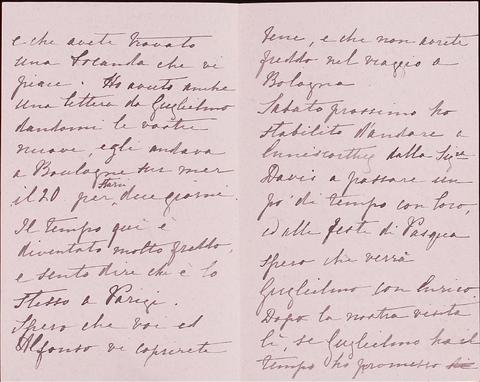 e che avete trovato
una Locanda che vi
piace. Ho avuto anche
una lettera da Guglielmo
dandomi le vostre
nuove, egli andava
a Boulogne sur mer
il 20 per due giorni.
Il tempo qui è
diventato molto freddo,
e sento dire che è lo
stesso a Parigi.
Spero che voi ed
Alfonso vi coprirete
bene, e che non avrete
freddo nel viaggio a
Bologna
Sabato prossimo ho
stabilito d'andare a
Enniscorthy dalla Sigra
Davis a passare un
po' di tempo con loro,
ed alle feste di Pasqua
spero che verrà
Guglielmo con Enrico.
Dopo la nostra visita
lì, se Guglielmo ha il
tempo ho promesso